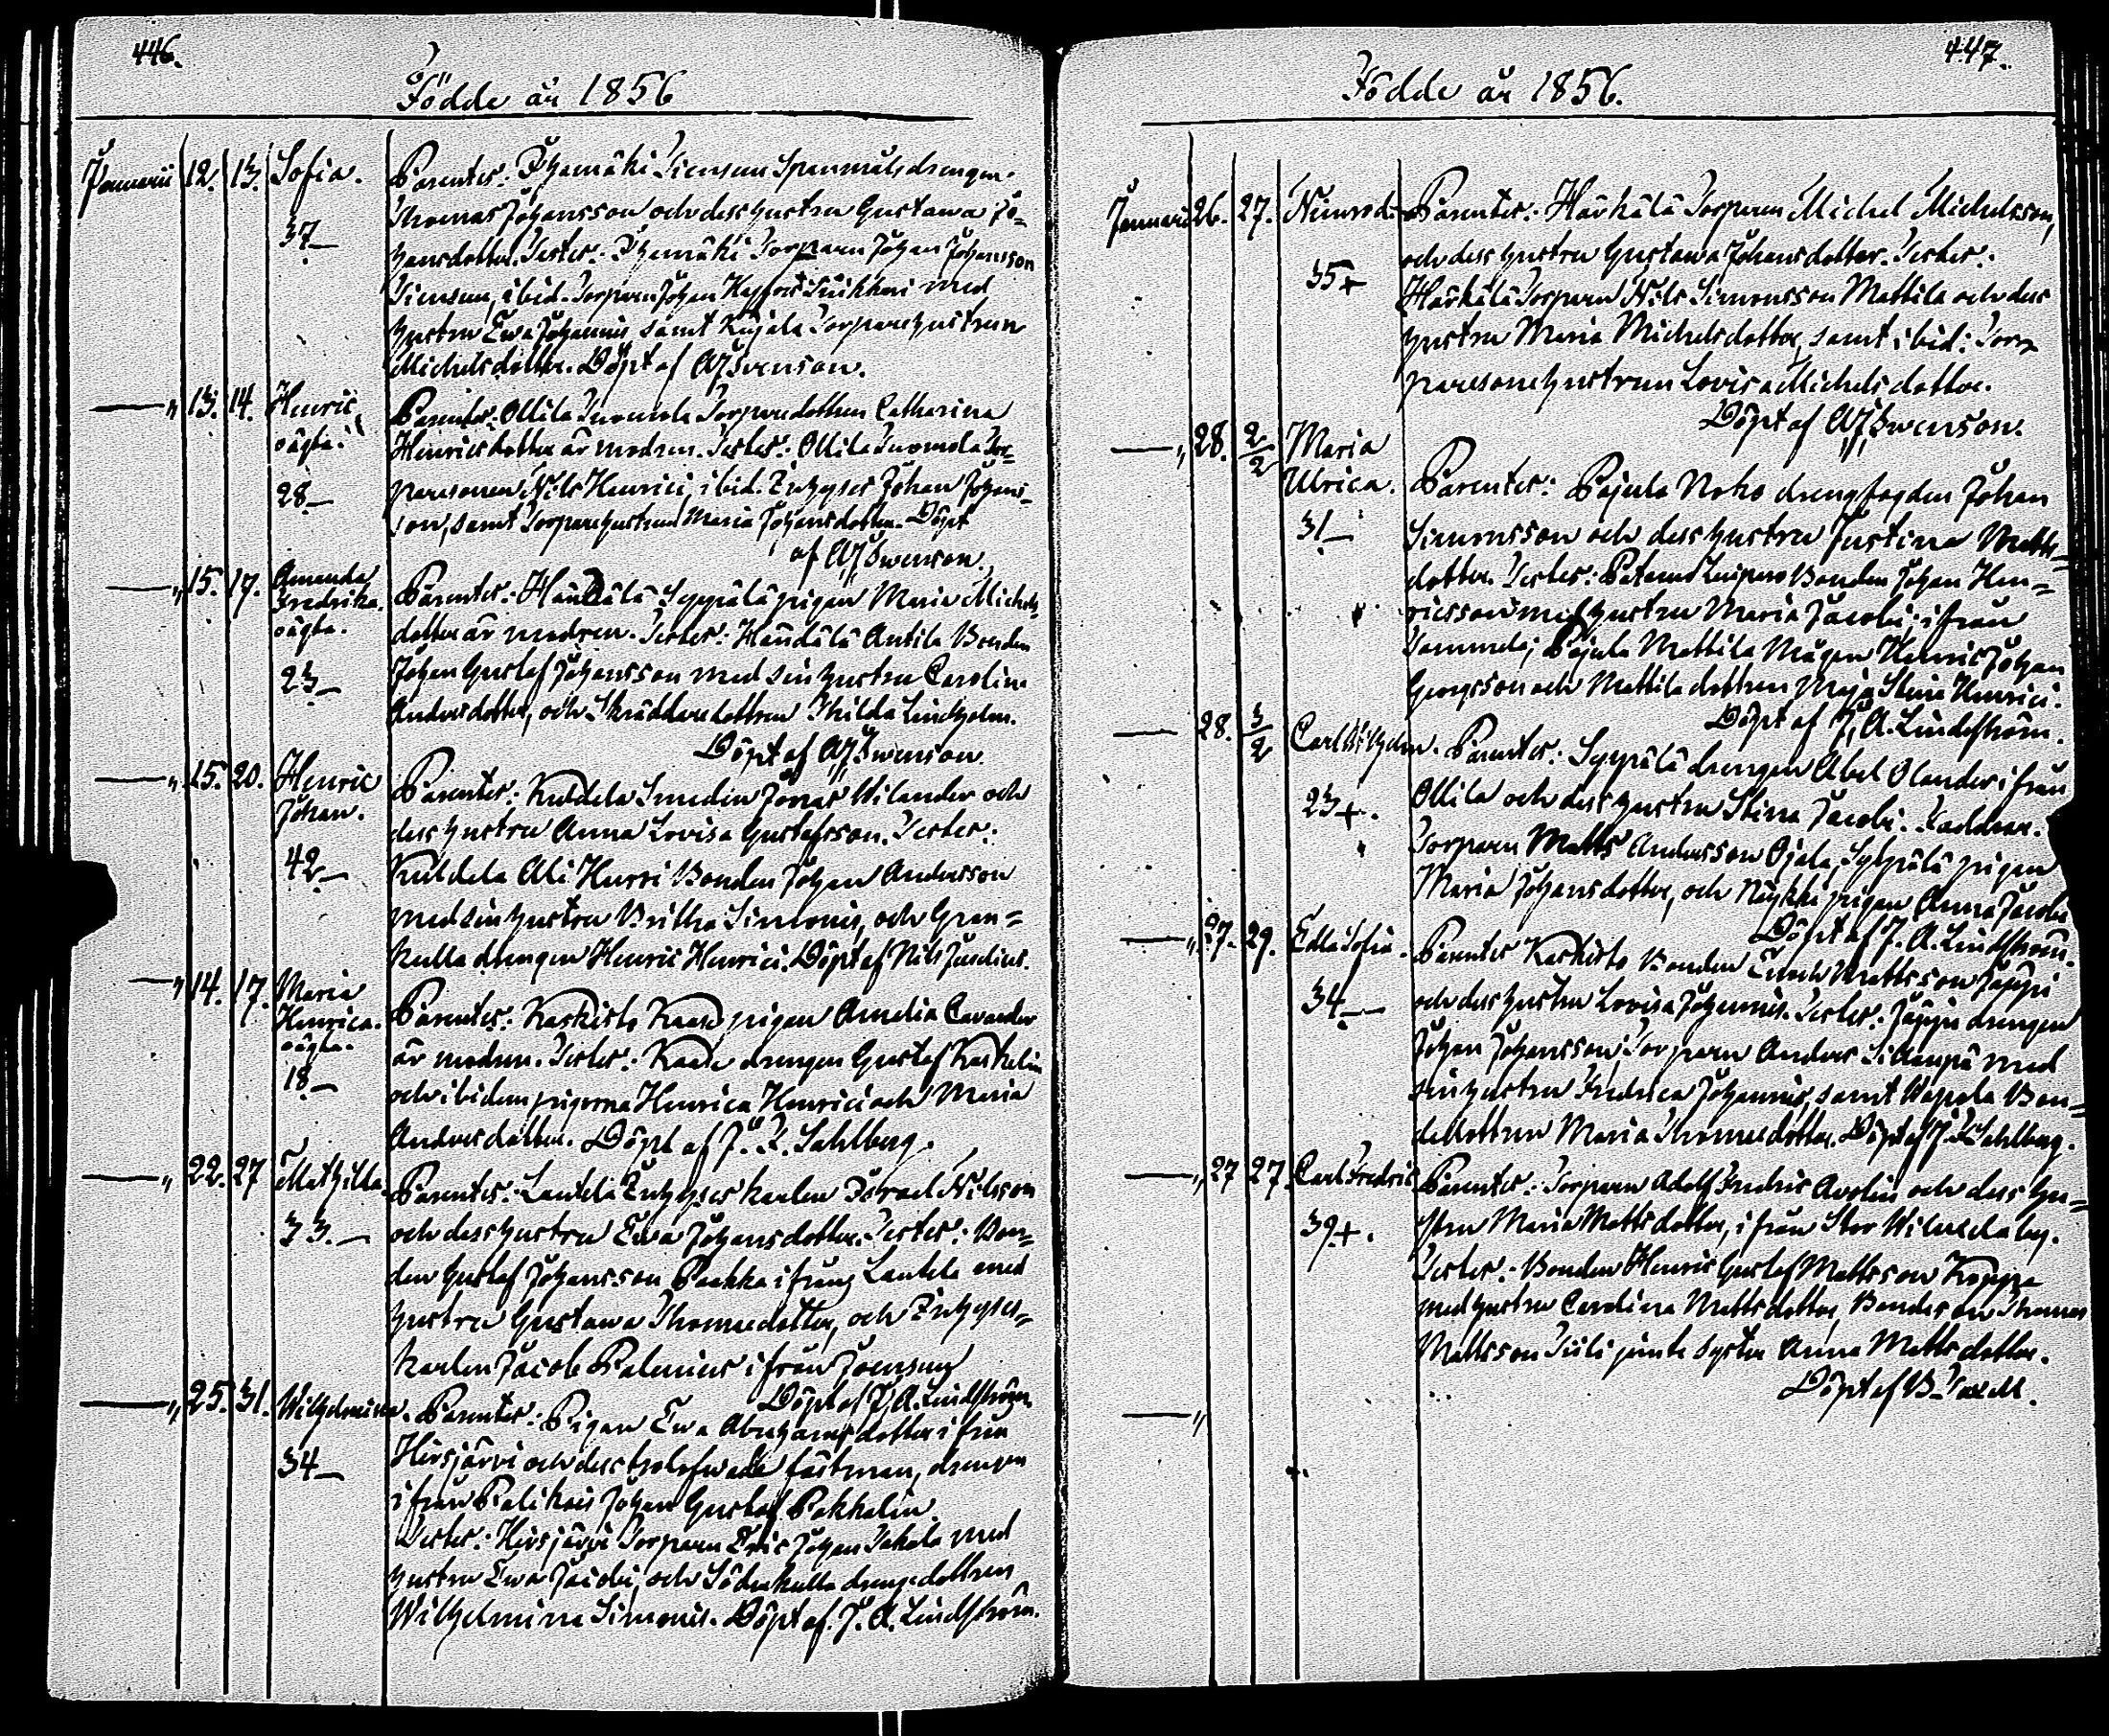 446.
Födde år 1856
Januarii 12. 13. Sofia. Parentes: Thomas Johansson och dess hustru Gustawa Jo=
37.— hansdotter. Testes: Torparen Johan Johansson
ibid. Torparen Johan med
hustru Ewa Johannis samt Kujala Torparehustrun
Michelsdotter. Döpt af Swenson.
—„ 13. 14. Henric, Parentes: Ollila Torparedottren Catharina
oägta. Henricsdotter är modren. Testes: Ollila Tor=
28.— paresonen Nils Henrici, ibid. Inhyses Johan Johans=
son, samt Torparehustrun Maria Johansdotter. Döpt
af Swenson.
—„ 15. 17. Amanda Parentes: Seppälä pigan Maria Michels
Fredrika. dotter är modren. Testes: Antila Bonden
oägta. Johan Gustaf Johansson med sin hustru Carolina
23.— Andersdotter, och Skräddaredottren Hilda Lindholm.
Döpt af Swenson
—„ 15. 20. Henric Parentes: Kuldela Smeden Jonas Wilander och
Johan. dess hustru Anna Lovisa Gustafsson. Testes:
42.— Kuldela Ali Hurri Bonden Johan Andersson
med sin hustru Britha Simonis, och Gran=
kulla drengen Henric Henrici. Döpt af Nils Juselius.
—„ 14. 17. Maria Parentes: Kaskisto Kaase pigan Amelia Cavander
Henrica. är modren. Testes: Kaase drengen Gustaf
oägta. och ibidem pigorna Henrica Henrici och Maria
18.— Andersdotter. Döpt af J. F. Sahlberg.
—„ 22. 27 Mathilda Parentes: Lautela Inhyses karlen Israel Nilsson
33.— och dess hustru Ewa Johansdotter. Testes: Bon=
den Gustaf Johansson Paakka ifrån Lautela med
hustru Gustawa Thomasdotter, och Inhyses=
karlen Jacob Palenius ifrån Joensuu
Döpt af J. A. Lindström
—„ 25. 31. Wilhelmina. Parentes: Pigan Ewa Abrahamsdotter ifrån
34.— Hirsjärvi och dess trolofwade fästman, drengen
ifrån Palikais Johan Gustaf Pakkalin.
Testes: Hirsjärvi Torparen Eric Johan med
hustru Ewa Jacobi, och Söderkulla drengedottren
Wilhelmina Simonis. Döpt af J. A. Lindström.
447.
Födde år 1856.
Januarii 26. 27. Nimrod. Parentes: Härkälä Torparen Michel Michelsson,
och dess hustru Gustawa Johansdotter. Testes:
35+ Härkälä Torparen Nils Simonsson Mattila och dess
hustru Maria Michelsdotter, samt ibid: Tor=
paresonehustrun Lovisa Michelsdotter.
Döpt af Swenson.
—„ 28. 2/2 Maria
Ulrica. Parentes: Pajula Noko drengfogden Johan
31.— Simonsson och dess hustru Justina Matts=
dotter. Testes: Bonden Johan Hen=
ricsson med hustru Maria Jacobi, ifrån
Pajula Mattila Mågen Henric Johan
Georgsson och Mattila dottren Maja Stina Henrici.
Döpt af J. A. Lindström.
— 28. 3/2 Carl Wilhelm. Parentes: Seppälä drengen Abel Olander ifrån
23+. Ollila och dess hustru Stina Jacobi. Faddrar.
Torparen Matts Andersson Ojala, Seppälä pigan
Maria Johansdotter, och pigan Anna Jacobi
Döpt af J. A. Lindström.
—„ 27. 29. Edla Sofia. Parentes Kaskisto Bonden Enoch Mattsson Jäppi
34.— och dess hustru Lovisa Johannis. Testes: Jäppi drengen
Johan Johansson, Torparen Anders Sillanpä med
sin hustru Fredrica Johannis, samt Bon=
dedottren Maria Thomasdotter. Döpt af J. F. Sahlberg.
—„ 27 27. Carl Fredric Parentes: Torparen Adolf Fredric Avolin och dess hu=
39+. stru Maria Mattsdotter, ifrån Stor by.
Testes: Bonden Henric Gustaf Mattsson
med hustru Carolina Mattsdotter, Bondeson Thomas
Mattsson jemte syster Anna Mattsdotter.
Döpt af
—„